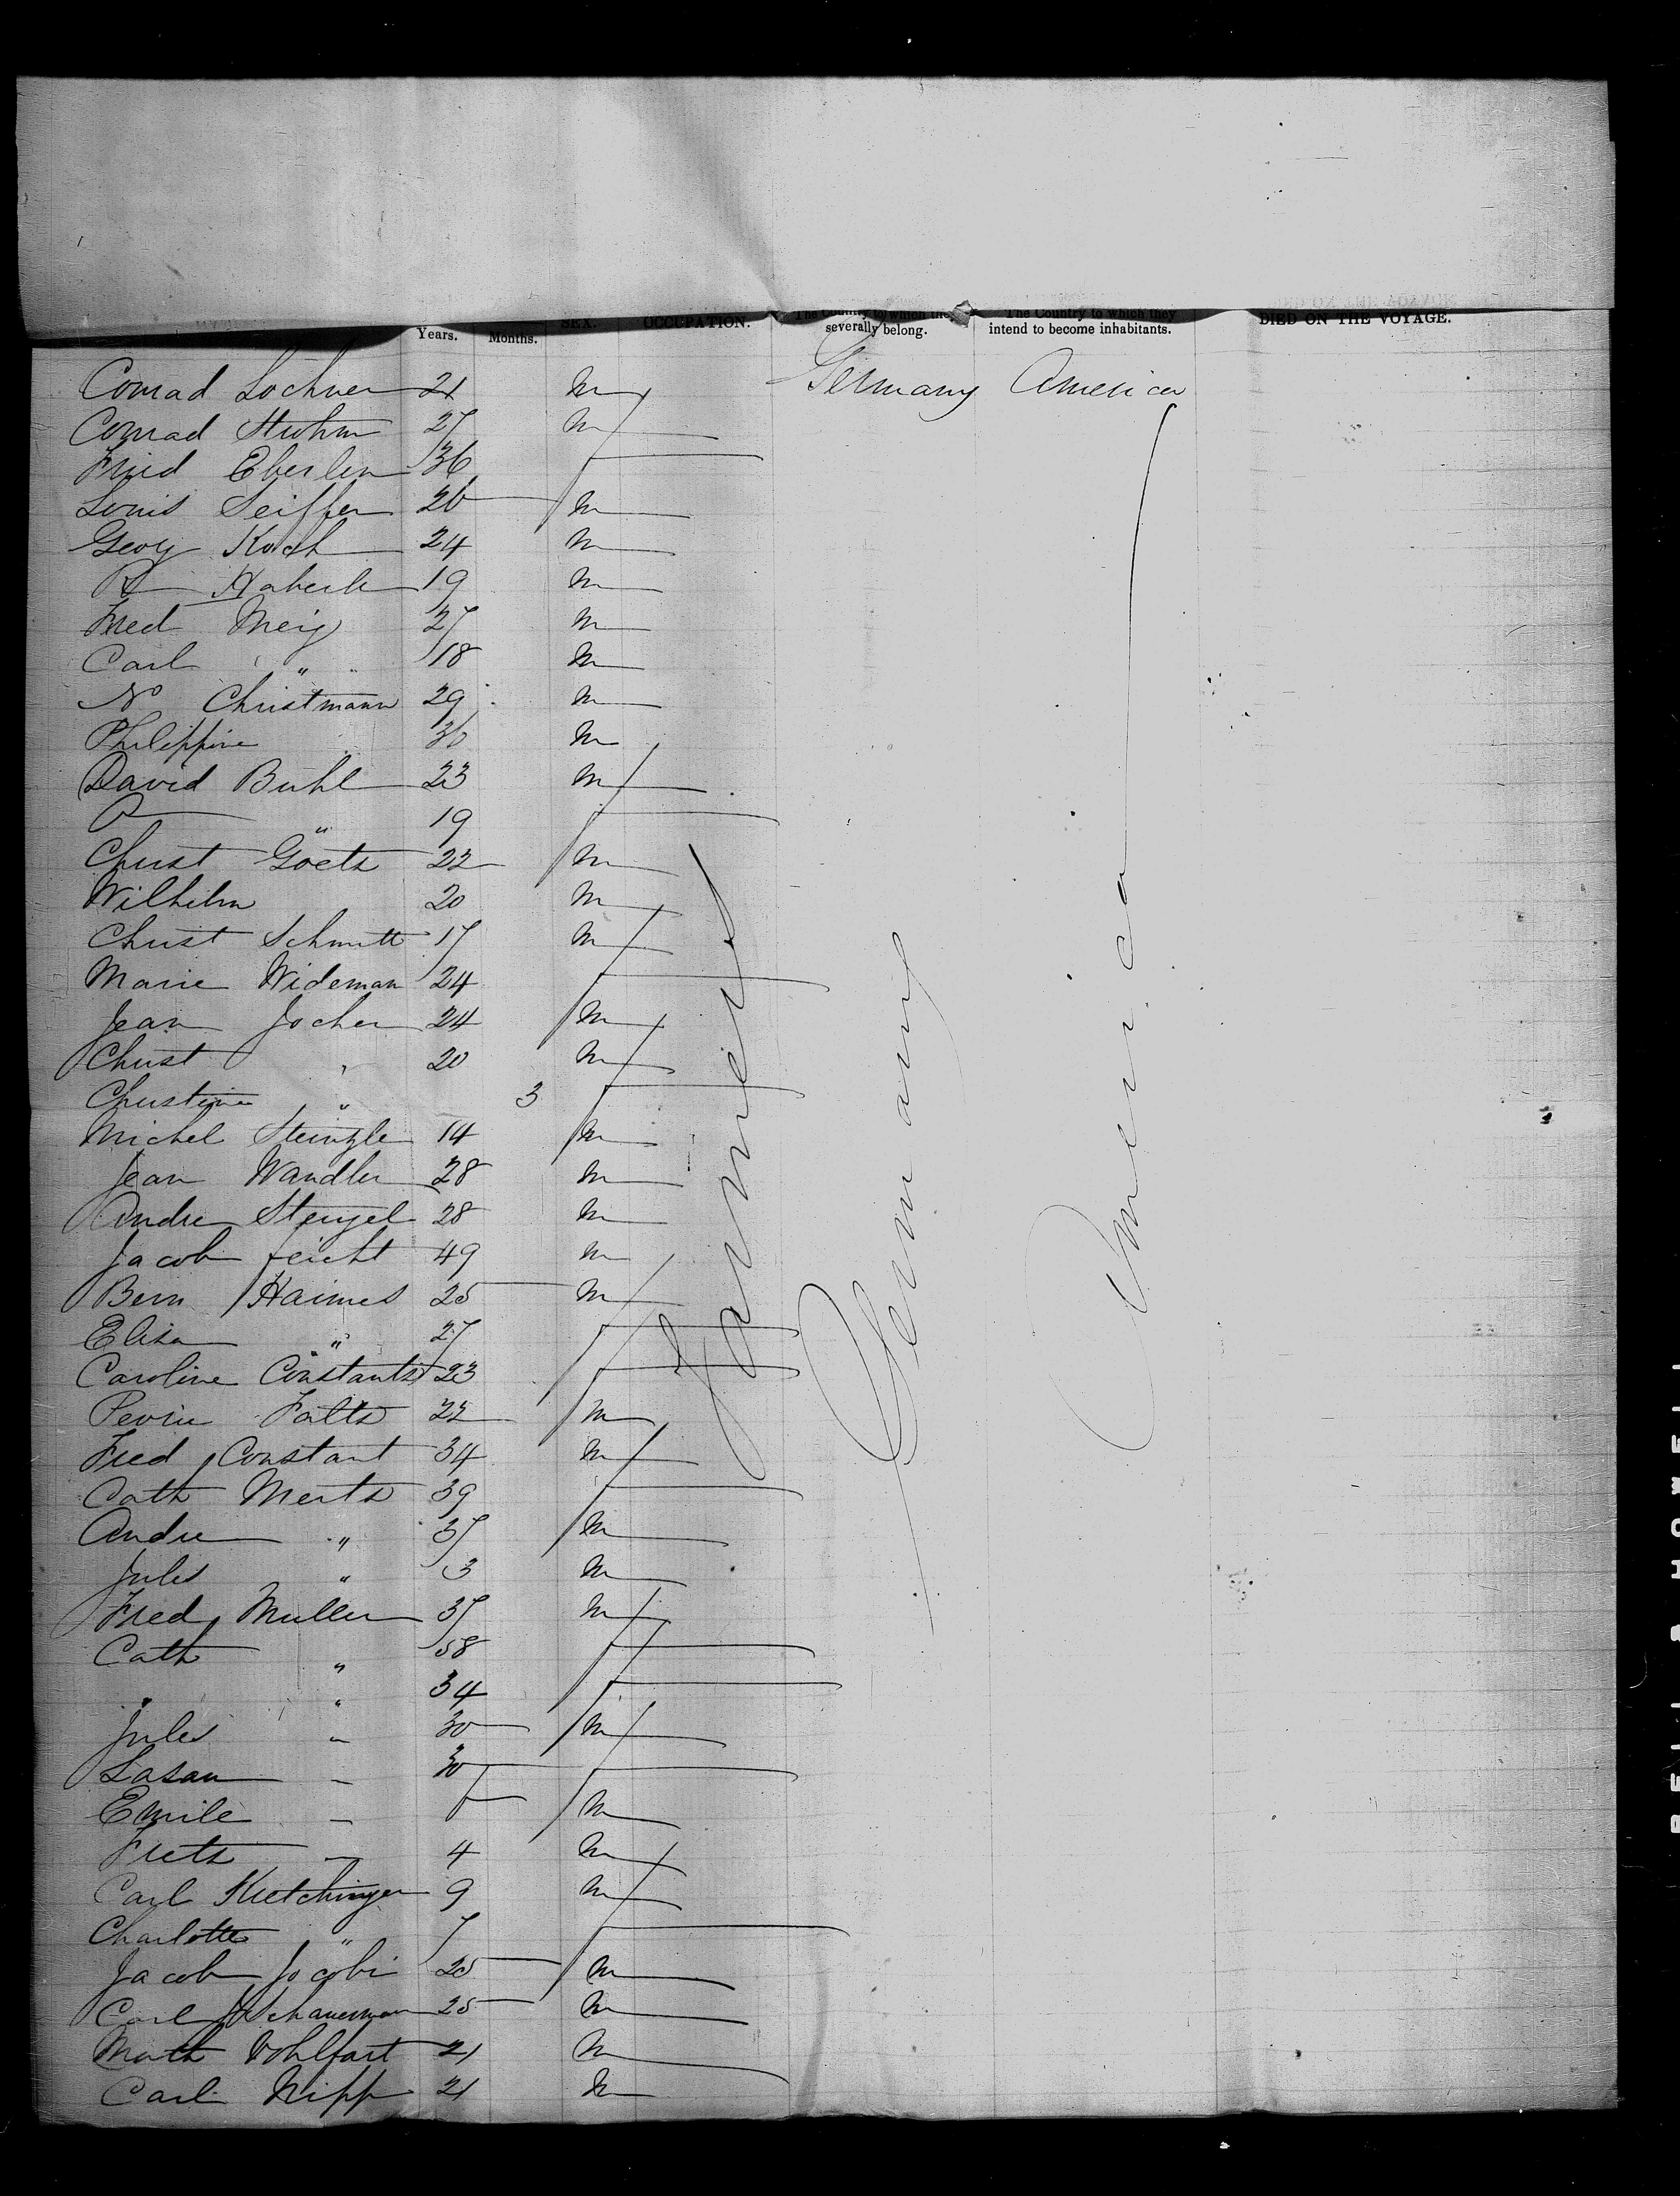 Years. Months. SEX. OCCUPATION. The Country to which they severally belong. The Country to which they intend to become inhabitants. DIED ON THE VOYAGE.
Conrad Lochner 21 m Germany America
Conrad Strohm 27 m
Fried Eberlen 36 f
Louis Seiffer 26 m
Georg Koch 24 m
R Haberle 19 m
Fred Meig 27 m
Carl " 18 m
N Christmann 29 m
Philippine 36 m
David Buhl 23 m
" 19 f
Christ Goetz 22 m
Wilhelm 20 m
Christ Schmitt 17 m
Marie Wideman 24 f
Jean Jocher 24 m
Christ " 20 m
Christine " 3 f
Michel Steinzle 14 m
Jean Wandler 28 m
Andre Stengel 28 m
Jacob Feicht 49 m
Bern Haimes 25 m
Elisa " 27 f
Caroline Constants 23 f
Faltz 22 m
Fred Constant 34 m
Cath Mertz 39 f
Andre " 37 m
Jules " 3 m
Fred Muller 37 m
Cath " 58 f
" " 34 f
Jules " 30 m
30 f
Emile m
4 m
Carl Kretchinger 9 m
Charlotte " 7 f
Jacob Jocobi 25 m
Carl Schauerman 25 m
Math Wohlfart 21 m
Carl Nipp 21 m
Farmers
Germany
America